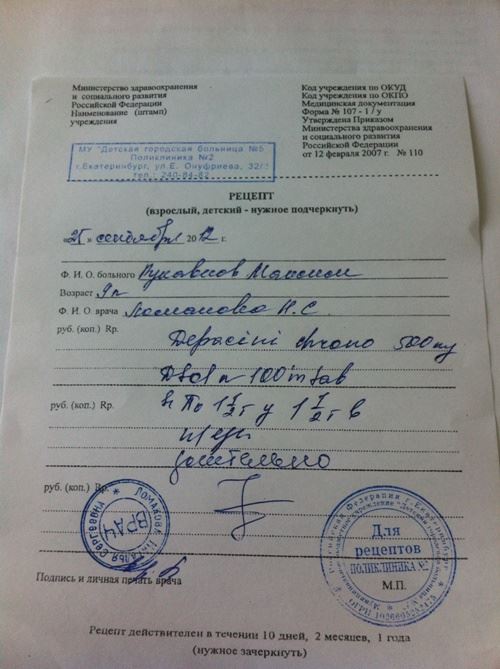 Министерство здравоохранения
и социального развития
Российской Федерации
Наименование (штамп)
учреждения
Код учреждения по ОКУД
Код учреждения по ОКПО
Медицинская документация
Форма № 107 - 1 / у
Утверждена Приказом
Министерства здравоохранения
и социального развития
Российской Федерации
от 12 февраля 2007 г. № 110
МУ "Детская городская больница №5
Поликлиника №2
г.Екатеринбург, ул.Е. Онуфриева, 32/
тел.: 240-84-82
РЕЦЕПТ
(взрослый, детский - нужное подчеркнуть)
«25» сентября 2012 г.
Ф. И. О. больного Рукавицов Максим
Возраст 9л
Ф. И. О. врача Ломакова Н.С.
руб. (коп.) Rp. Depacini chrono 500 mg
N 100 in tab
руб. (коп.) Rp. По 1 1/2 т у 1 1/2 т в
длительно
руб. (коп.) Rp.
ВРАЧ
Для
рецептов
ПОЛИКЛИНИКА №2
М.П.
Подпись и личная печать врача
Рецепт действителен в течении 10 дней, 2 месяцев, 1 года
(нужное зачеркнуть)